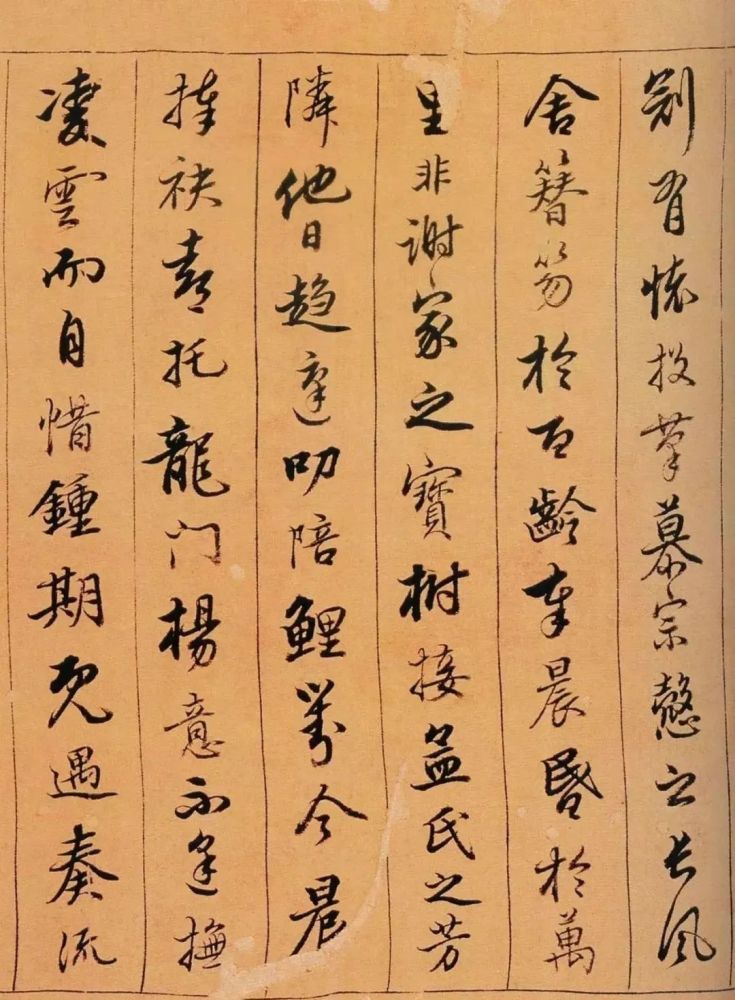 冠有懷投筆慕宗愨之長風
舍簪笏於百齡奉晨昏於萬
里非謝家之寶樹接孟氏之芳
隣他日趨庭叨陪鯉對今晨
捧袂喜托龍門楊意不逢撫
凌雲而自惜鍾期既遇奏流